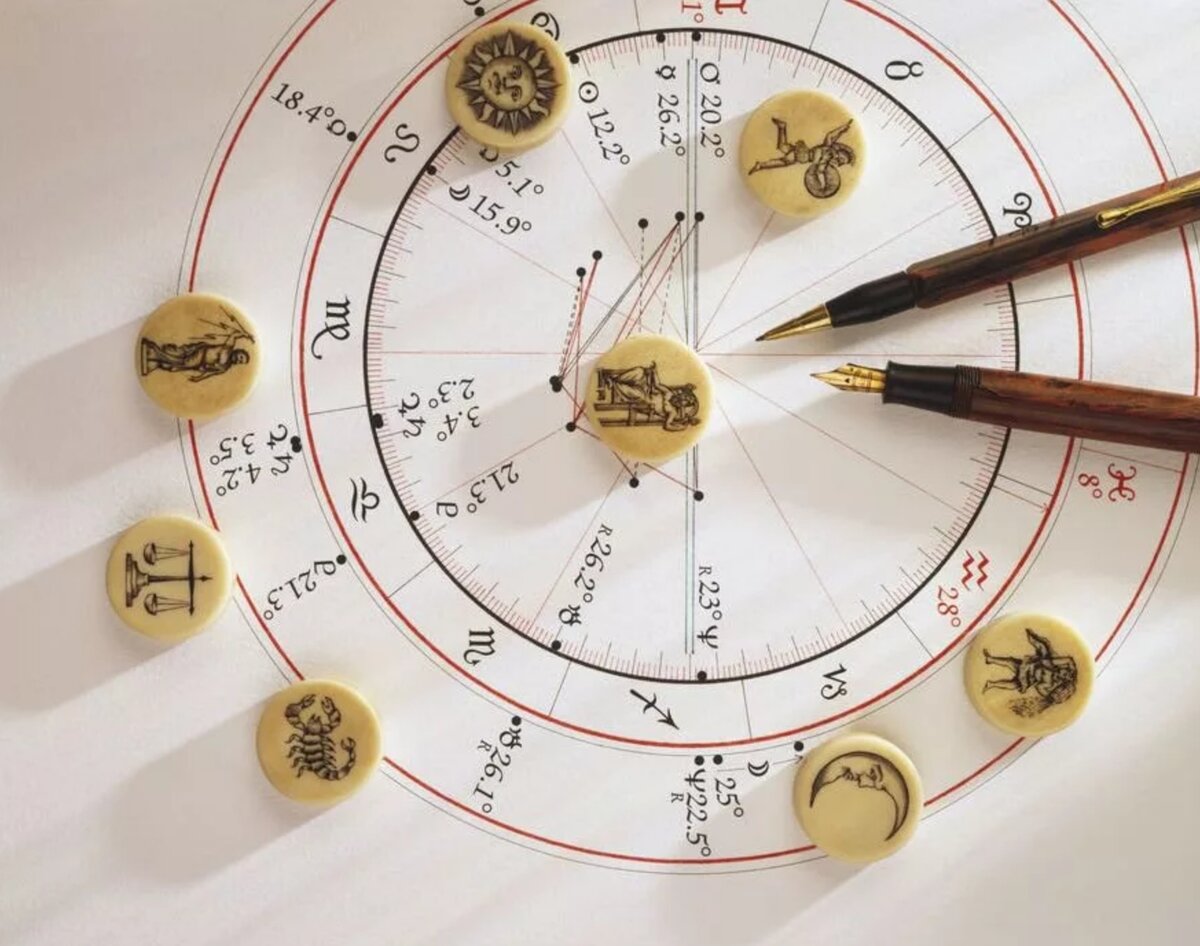 ♊
1°
♉
♋
18.4°
♌
☉ 12.2°
☿ 26.2°
♂ 20.2°
5.1°
☽ 15.9°
♈
♍
♃ 2.3°
♄ 3.4°
♃ 3.5°
♄ 4.2°
♎
21.3°
21.3°
♓
8°
♒
28°
R 26.2° ♅
R 23° ♆
♏
♐
♑
♅ 26.1°
R
♆ 22.5°
R
25°
☽